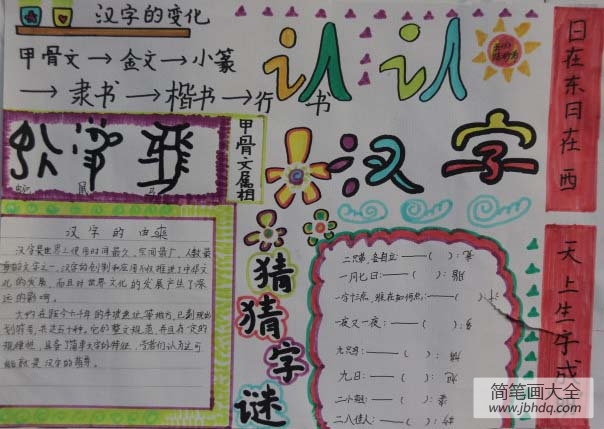 汉字的变化
甲骨文→金文→小篆
→隶书→楷书→行书
认认
汉字
甲骨文属相
鼠
汉字的由来
汉字是世界上使用时间最久、空间最广、人数最
多的文字之一,汉字的创制和应用不仅推进了中华文
化的发展,而且对世界文化的发展产生了深
远的影响。
大约在距今六千年的半坡遗址等地方,已
出现
刻划符号,共达五十种。它的整文规范,并且有一定的
规律性,具备了简单文字的特征,学者们认为这可
能就是汉字的萌芽。
猜猜字谜
二兄弟,各自立——( ):
一月七日:——( ):
一字十三点,难在如何点:——( )
一夜又一夜:——( ):多
九只鸟:——( ):鸠
九日:——( ):旭
二小姐:——( ):
二八佳人:——( ):
日在东日在西
天上生字或
简笔画大全
www.jbhdq.com